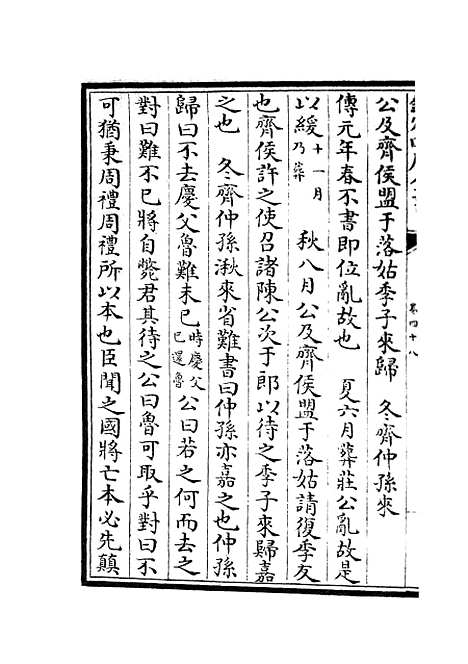 公及齊侯盟于落姑季子來歸　冬齊仲孫來
傳元年春不書即位亂故也　夏六月葬莊公亂故是
以緩十一月乃葬　秋八月公及齊侯盟于落姑請復季友
也齊侯許之使召諸陳公次于郎以待之季子來歸嘉
之也　冬齊仲孫湫來省難書曰仲孫亦嘉之也仲孫
歸曰不去慶父魯難未已時慶父已還魯公曰若之何而去之
對曰難不已將自斃君其待之公曰魯可取乎對曰不
可猶秉周禮周禮所以本也臣聞之國將亡本必先顛